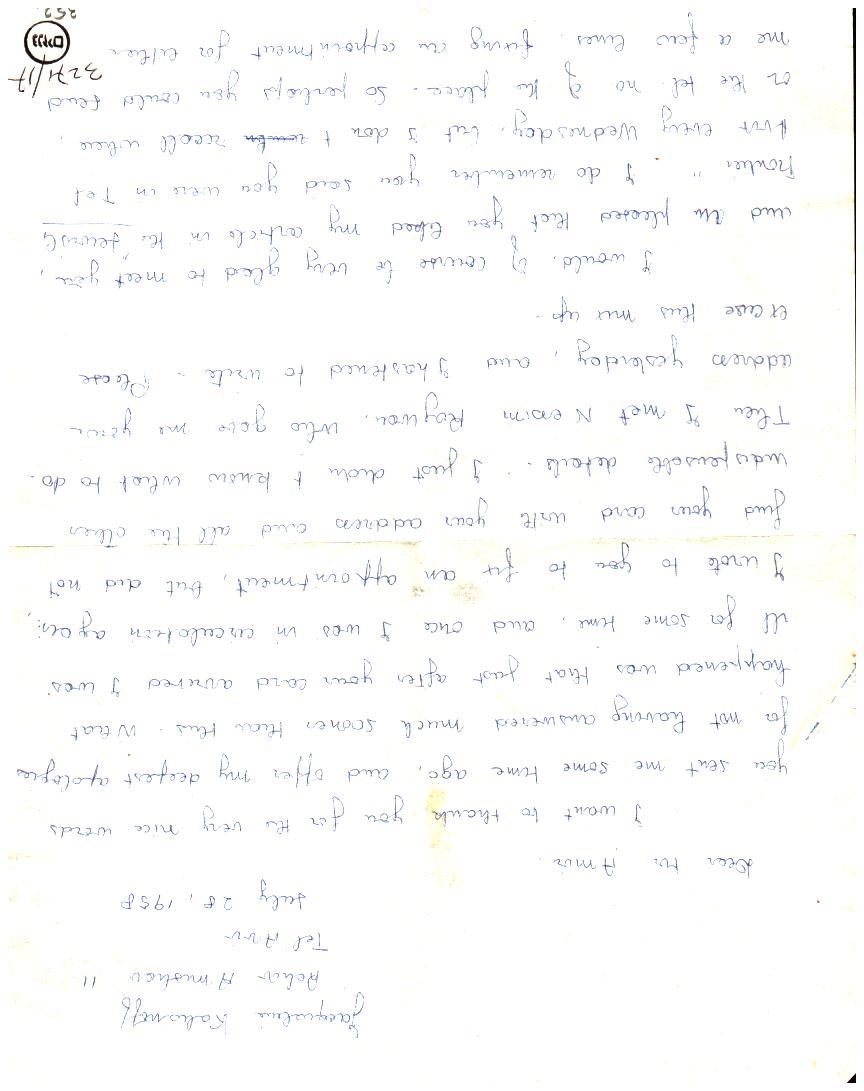 Jacqueline Kahanoff
Rehov Amishav 11
Tel Aviv
July 28, 1958
Dear Mr Amir.
I want to thank you for the very nice words
you sent me some time ago, and offer my deepest apologies
for not having answered much sooner than this. What
happened was that just after your card arrived I was
ill for some time, and once I was in circulation again,
I wrote to you to fix an appointment, but did not
find your card with your address and all the other
indispensable details. I just didn't know what to do.
Then I met Nessim Rajwan, who gave me your
address yesterday, and I hastened to write. Please
excuse this mix up.
I would, of course be very glad to meet you,
and am pleased that you liked my article in the "Jewish
Frontier". I do remember you said you were in Tel
Aviv every Wednesday, but I don't recall where
or the tel. no of the place. So perhaps you could send
me a few lines, fixing an appointment for either
3271/17
גנזים
252